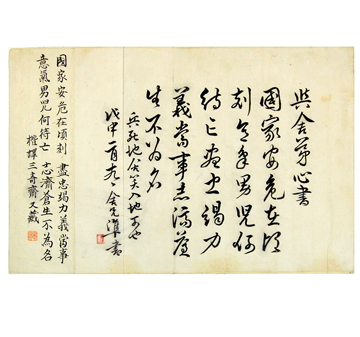 與舍弟心書
國家安危在頃
刻意氣男兒何
待亡盡忠竭力
義當事志濟蒼
生不為名
兵死地含笑入地可也
戊申二月九日舍兄書
國家安危在頃刻 盡忠竭力義當事
意氣男兒何待亡 志濟蒼生不為名
楷譯三奇齋又藏